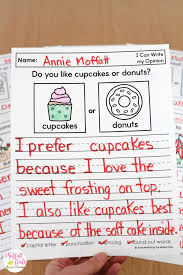 I Can Write
Name: Annie Moffatt my Opinion
Do you like cupcakes or donuts?
or
cupcakes donuts
I prefer cupcakes
because I love the
sweet frosting on top.
I also like cupcakes best
because of the soft cake inside.
capital letter punctuation spacing sound out words